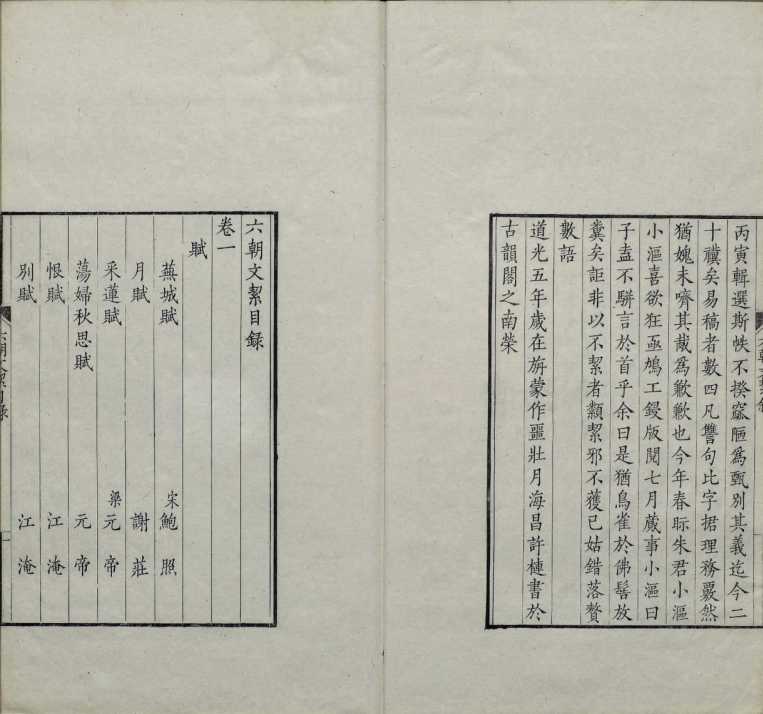 丙寅輯選斯帙不揆窳陋為甄別其義迄今二
十禩矣易稿者數四凡讐句比字捃理務覈然
猶媿未嚌其胾為歉歉也今年春眎朱君小漚
小漚喜欲狂亟鳩工鋟版閱七月蕆事小漚曰
子盍不駢言於首乎余曰是猶鳥雀於佛髻放
糞矣詎非以不絜者纇絜邪不獲已姑錯落贅
數語
道光五年歲在旃蒙作噩壯月海昌許槤書於
古韻閣之南榮
六朝文絜目録
卷一
賦
蕪城賦 宋鮑照
月賦 謝莊
采蓮賦 梁元帝
蕩婦秋思賦 元帝
恨賦 江淹
別賦 江淹